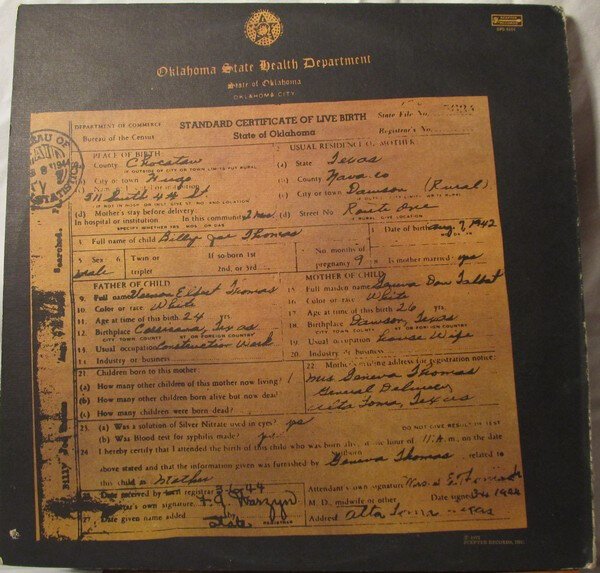 SCEPTER RECORDS
Oklahoma State Health Department
State of Oklahoma
OKLAHOMA CITY
DEPARTMENT OF COMMERCE
Bureau of the Census
STANDARD CERTIFICATE OF LIVE BIRTH
State of Oklahoma
State File No.
Registrar's No.
PLACE OF BIRTH
County Chocataw
IF OUTSIDE OF CITY OR TOWN LIMITS PUT RURAL
City or town Hugo
311 South 44 St
IF NOT IN HOSP OR INST GIVE ST. NO. AND LOCATION
(d) Mother's stay before delivery:
In hospital or institution In this community 2 mos.
SPECIFY WHETHER YRS. MOS. OR DAYS
USUAL RESIDENCE OF MOTHER:
(a) State Texas
(b) County Navarco
(c) City or town Dawson (Rural)
IF OUTSIDE CITY OR TOWN LIMITS, RURAL
(d) Street No Route One
IF RURAL GIVE LOCATION
Full name of child Billy Joe Thomas
Date of birth Aug. 7, 1942
5 Sex male
6 Twin or triplet
If so born 1st 2nd, or 3rd
No months of pregnancy 9
Is mother married? yes
FATHER OF CHILD
9. Full name Vernon Elbert Thomas
10. Color or race White
11. Age at time of birth 24 yrs
12. Birthplace Corsicana, Texas
CITY TOWN COUNTY ST OR FOREIGN COUNTRY
13. Usual occupation Construction Work
14. Industry or business
MOTHER OF CHILD
15 Full maiden name Geneva Dow Talbat
16 Color or race White
17. Age at time of birth 26 yrs
18. Birthplace Dawson, Texas
CITY TOWN COUNTY ST OR FOREIGN COUNTRY
19. Usual occupation House Wife
20. Industry or business
21 Children born to this mother:
(a) How many other children of this mother now living? 1
(b) How many other children born alive but now dead?
(c) How many children were born dead?
22 Mother's mailing address for registration notice:
Mrs Geneva Thomas
General Delivery
Alta Loma, Texas
23. (a) Was a solution of Silver Nitrate used in eyes? yes
(b) Was Blood test for syphilis made? yes
DO NOT GIVE RESULT OF TEST
24 I hereby certify that I attended the birth of this child who was born alive at the hour of 11 A.m., on the date
above stated and that the information given was furnished by Geneva Thomas, related to
this child as Mother
Date received by registrar
Registrar's own signature
REGISTRAR
Date given name added
Attendant's own signature
M. D., midwife or other Date signed
Address Alta Loma Texas
Billy Joe Thomas
Searched.
℗ 1972
SCEPTER RECORDS, INC.